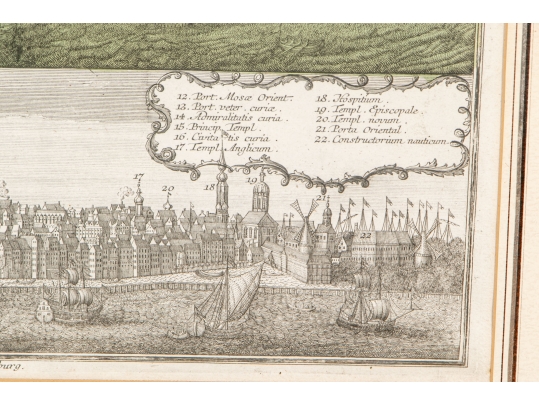 12. Port. Mosæ Orient.
13. Port. veter. curiæ.
14. Admiralitatis curia.
15. Princip. Templ.
16. Civitatis curia.
17. Templ. Anglicum.
18. Hospitum.
19. Templ. Episcopale.
20. Templ. novum.
21. Porta Oriental.
22. Constructorium nauticum.
17
20
18
19
21
22
burg.